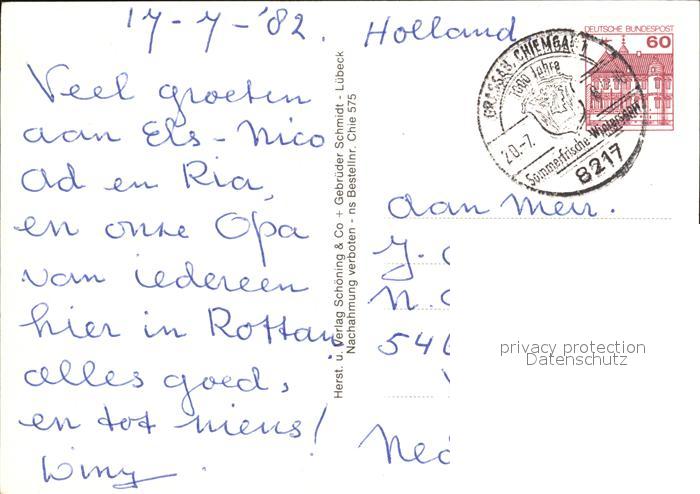 17-7-'82.
Veel groeten
aan Els-Nico
Ad en Ria,
en onze Opa
van iedereen
hier in Rottau
alles goed,
en tot niens!
Winy.
Herst. u. Verlag Schöning & Co + Gebrüder Schmidt - Lübeck
Nachahmung verboten - ns Bestellnr. Chie 575
Holland
DEUTSCHE BUNDESPOST
60
GRASSAU, CHIEMGAU 1
Jahre
20.-7.
Sommerfrische Wintersport
8217
aan Mevr.
J.
N.
546
Ned
privacy protection
Datenschutz